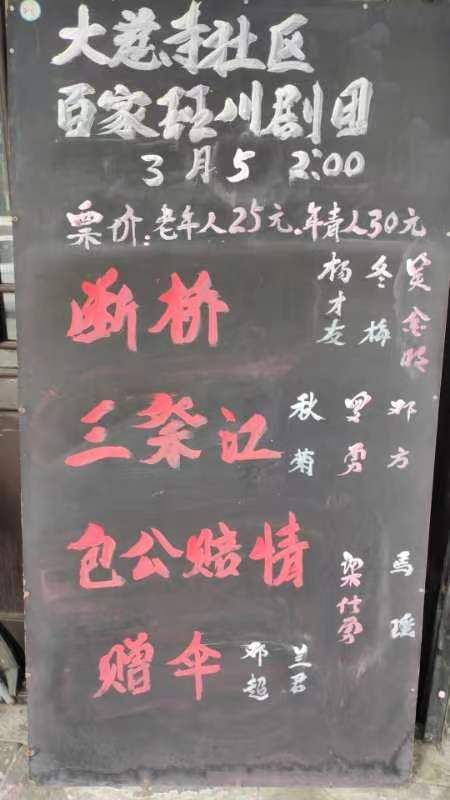 大慈寺社区
百家班川剧团
3月5 2:00
票价:老年人25元.年青人30元
断桥 杨才友 冬梅 吴金明
三祭江 秋菊 罗勇 邓方
包公赔情 梁仕勇 马瑶
赠伞 邓超 兰君